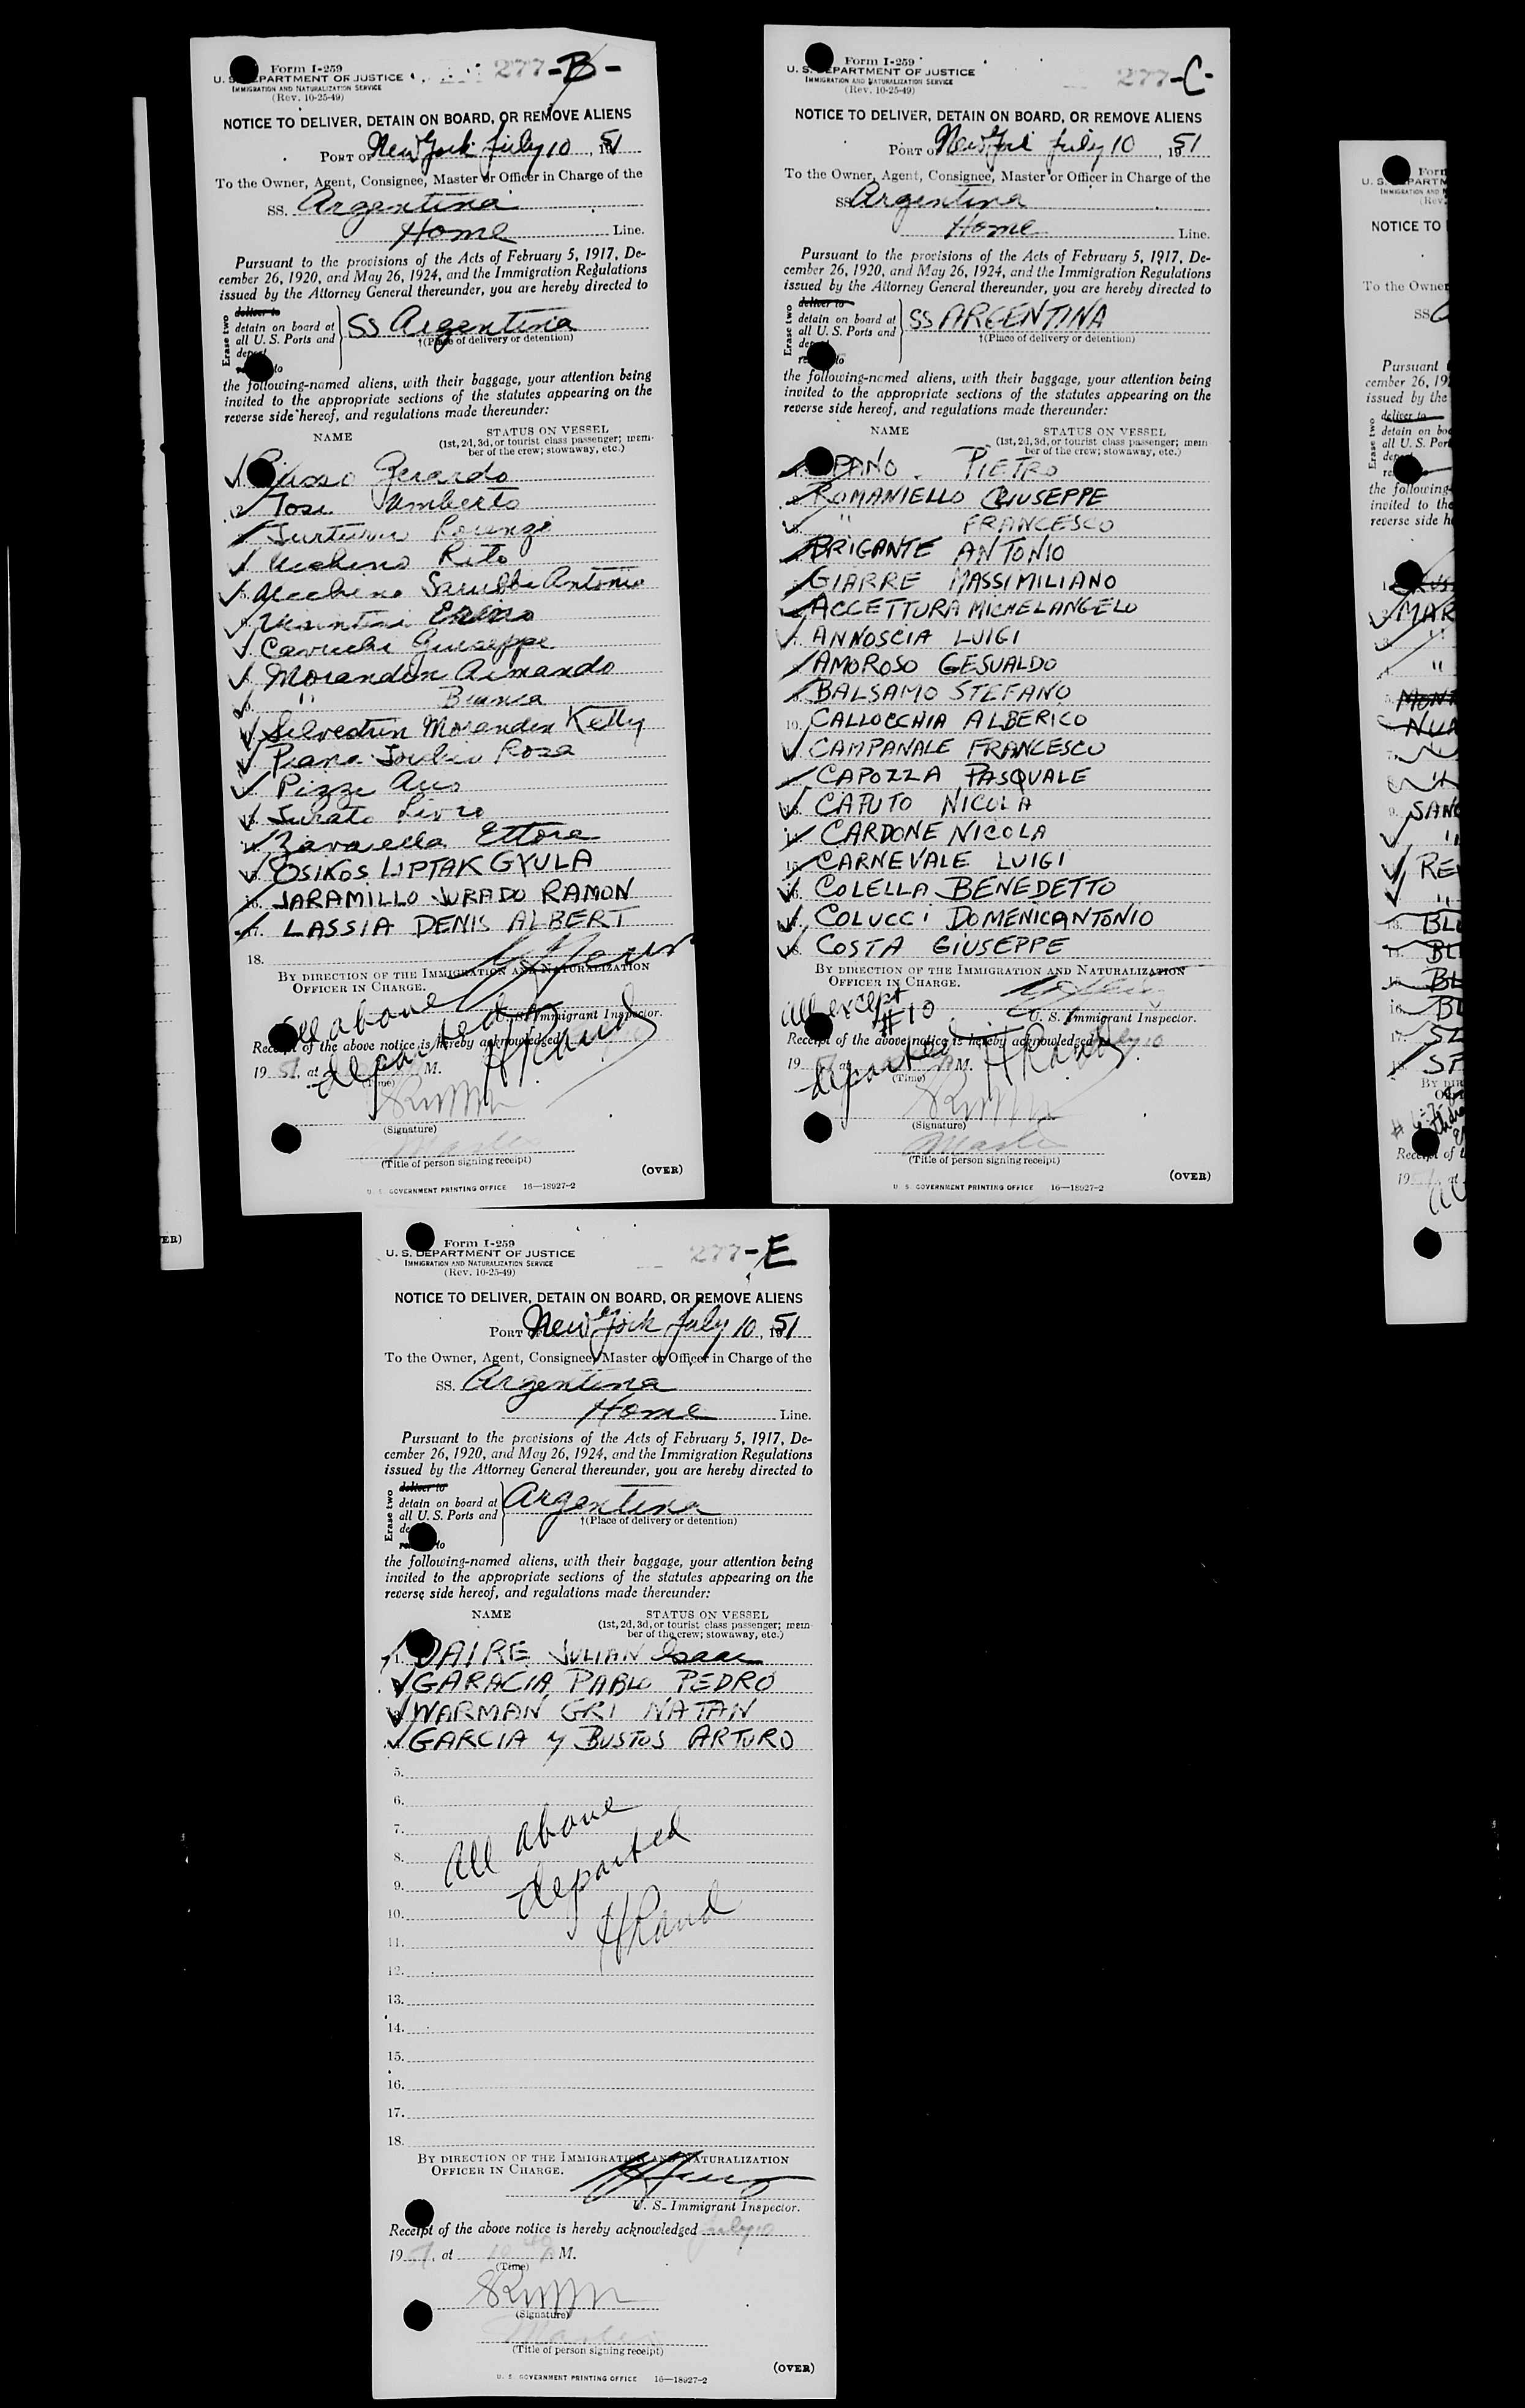 Form I-259
U. S. DEPARTMENT OF JUSTICE
IMMIGRATION AND NATURALIZATION SERVICE
(Rev. 10-25-49)
277-B-
NOTICE TO DELIVER, DETAIN ON BOARD, OR REMOVE ALIENS
PORT OF New York July 10, 1951
To the Owner, Agent, Consignee, Master or Officer in Charge of the
SS. Argentina
Home Line.
Pursuant to the provisions of the Acts of February 5, 1917, De-
cember 26, 1920, and May 26, 1924, and the Immigration Regulations
issued by the Attorney General thereunder, you are hereby directed to
Erase two
deliver to
detain on board at
all U. S. Ports and
SS Argentina
†(Place of delivery or detention)
the following-named aliens, with their baggage, your attention being
invited to the appropriate sections of the statutes appearing on the
reverse side hereof, and regulations made thereunder:
NAME STATUS ON VESSEL
(1st, 2d, 3d, or tourist class passenger; mem-
ber of the crew; stowaway, etc.)
Gerardo
Tosi Umberto
Rito
Antonio
Giuseppe
Morandin Armando
" Bianca
Silvestrin Morandin Kelly
Rosa
Pizzi
Ettore
OSIKOS LIPTAK GYULA
JARAMILLO JURADO RAMON
17. LASSIA DENIS ALBERT
18.
BY DIRECTION OF THE IMMIGRATION AND NATURALIZATION
OFFICER IN CHARGE.
U. S. Immigrant Inspector.
All above
departed
HRand
Receipt of the above notice is hereby acknowledged
1951, at M.
(Time)
(Signature)
Master
(Title of person signing receipt)
(OVER)
U. S. GOVERNMENT PRINTING OFFICE 16—18927-2
Form I-259
U. S. DEPARTMENT OF JUSTICE
IMMIGRATION AND NATURALIZATION SERVICE
(Rev. 10-25-49)
277-C-
NOTICE TO DELIVER, DETAIN ON BOARD, OR REMOVE ALIENS
PORT OF New York July 10, 1951
To the Owner, Agent, Consignee, Master or Officer in Charge of the
SS Argentina
Home Line.
Pursuant to the provisions of the Acts of February 5, 1917, De-
cember 26, 1920, and May 26, 1924, and the Immigration Regulations
issued by the Attorney General thereunder, you are hereby directed to
Erase two
deliver to
detain on board at
all U. S. Ports and
SS ARGENTINA
†(Place of delivery or detention)
the following-named aliens, with their baggage, your attention being
invited to the appropriate sections of the statutes appearing on the
reverse side hereof, and regulations made thereunder:
NAME STATUS ON VESSEL
(1st, 2d, 3d, or tourist class passenger; mem-
ber of the crew; stowaway, etc.)
PIETRO
ROMANIELLO GIUSEPPE
" FRANCESCO
BRIGANTE ANTONIO
GIARRE MASSIMILIANO
ACCETTURA MICHELANGELO
ANNOSCIA LUIGI
AMOROSO GESUALDO
BALSAMO STEFANO
10. CALLOCCHIA ALBERICO
CAMPANALE FRANCESCO
CAPOZZA PASQUALE
CAPUTO NICOLA
CARDONE NICOLA
15. CARNEVALE LUIGI
COLELLA BENEDETTO
COLUCCI DOMENICANTONIO
COSTA GIUSEPPE
BY DIRECTION OF THE IMMIGRATION AND NATURALIZATION
OFFICER IN CHARGE.
U. S. Immigrant Inspector.
All except
#10
departed
HRand
Receipt of the above notice is hereby acknowledged July 10
19 at AM.
(Time)
(Signature)
Master
(Title of person signing receipt)
(OVER)
U. S. GOVERNMENT PRINTING OFFICE 16—18927-2
Form
U. S. DEPARTM
IMMIGRATION AND N
(Rev.
NOTICE TO
To the Owner
SS
Pursuant
cember 26, 19
issued by the
Erase two
deliver to
detain on boa
all U. S. Port
the following
invited to the
reverse side h
MAR
"
"
MONT
9. SANC
"
RE
"
13. BL
14. BL
15. BL
16. BL
17. SL
SP
BY DIR
Receipt of t
19
ER)
Form I-259
U. S. DEPARTMENT OF JUSTICE
IMMIGRATION AND NATURALIZATION SERVICE
(Rev. 10-25-49)
277-E
NOTICE TO DELIVER, DETAIN ON BOARD, OR REMOVE ALIENS
PORT OF New York July 10, 1951
To the Owner, Agent, Consignee, Master or Officer in Charge of the
SS. Argentina
Home Line.
Pursuant to the provisions of the Acts of February 5, 1917, De-
cember 26, 1920, and May 26, 1924, and the Immigration Regulations
issued by the Attorney General thereunder, you are hereby directed to
Erase two
deliver to
detain on board at
all U. S. Ports and
Argentina
†(Place of delivery or detention)
the following-named aliens, with their baggage, your attention being
invited to the appropriate sections of the statutes appearing on the
reverse side hereof, and regulations made thereunder:
NAME STATUS ON VESSEL
(1st, 2d, 3d, or tourist class passenger; mem-
ber of the crew; stowaway, etc.)
1. DAIRE JULIAN Isaac
GARACIA PABLO PEDRO
WARMAN GRI NATAN
GARCIA y BUSTOS ARTURO
5.
6.
7.
8.
9.
10.
11.
12.
13.
14.
15.
16.
17.
18.
All above
departed
HRand
BY DIRECTION OF THE IMMIGRATION AND NATURALIZATION
OFFICER IN CHARGE.
U. S. Immigrant Inspector.
Receipt of the above notice is hereby acknowledged July 10
1951, at M.
(Time)
(Signature)
Master
(Title of person signing receipt)
(OVER)
U. S. GOVERNMENT PRINTING OFFICE 16—18927-2